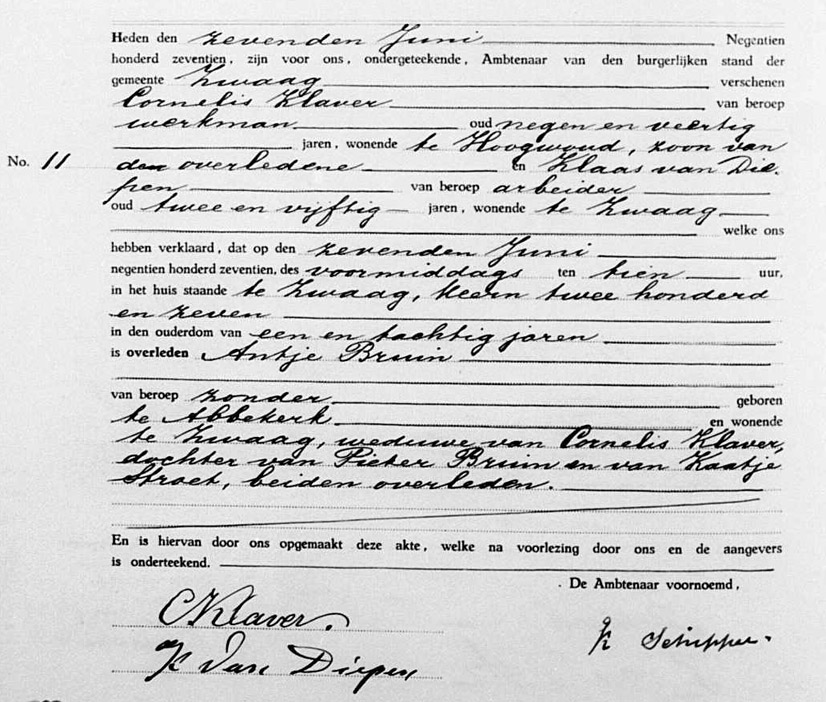 Heden den zevenden Juni Negentien
honderd zeventien, zijn voor ons, ondergeteekende, Ambtenaar van den burgerlijken stand der
gemeente Zwaag verschenen
Cornelis Klaver van beroep
werkman oud negen en veertig
jaren, wonende te Hoogwoud, zoon van
No. 11 den overledene en Klaas van Die-
pen van beroep arbeider
oud twee en vijftig jaren, wonende te Zwaag
welke ons
hebben verklaard, dat op den zevenden Juni
negentien honderd zeventien, des voormiddags ten tien uur,
in het huis staande te Zwaag, Kern twee honderd
en zeven
in den ouderdom van een en tachtig jaren
is overleden Antje Bruin
van beroep zonder geboren
te Abbekerk en wonende
te Zwaag, weduwe van Cornelis Klaver,
dochter van Pieter Bruin en van Kaatje
Stroet, beiden overleden.
En is hiervan door ons opgemaakt deze akte, welke na voorlezing door ons en de aangevers
is onderteekend.
De Ambtenaar voornoemd,
CKlaver.
K Schipper
K Van Diepen